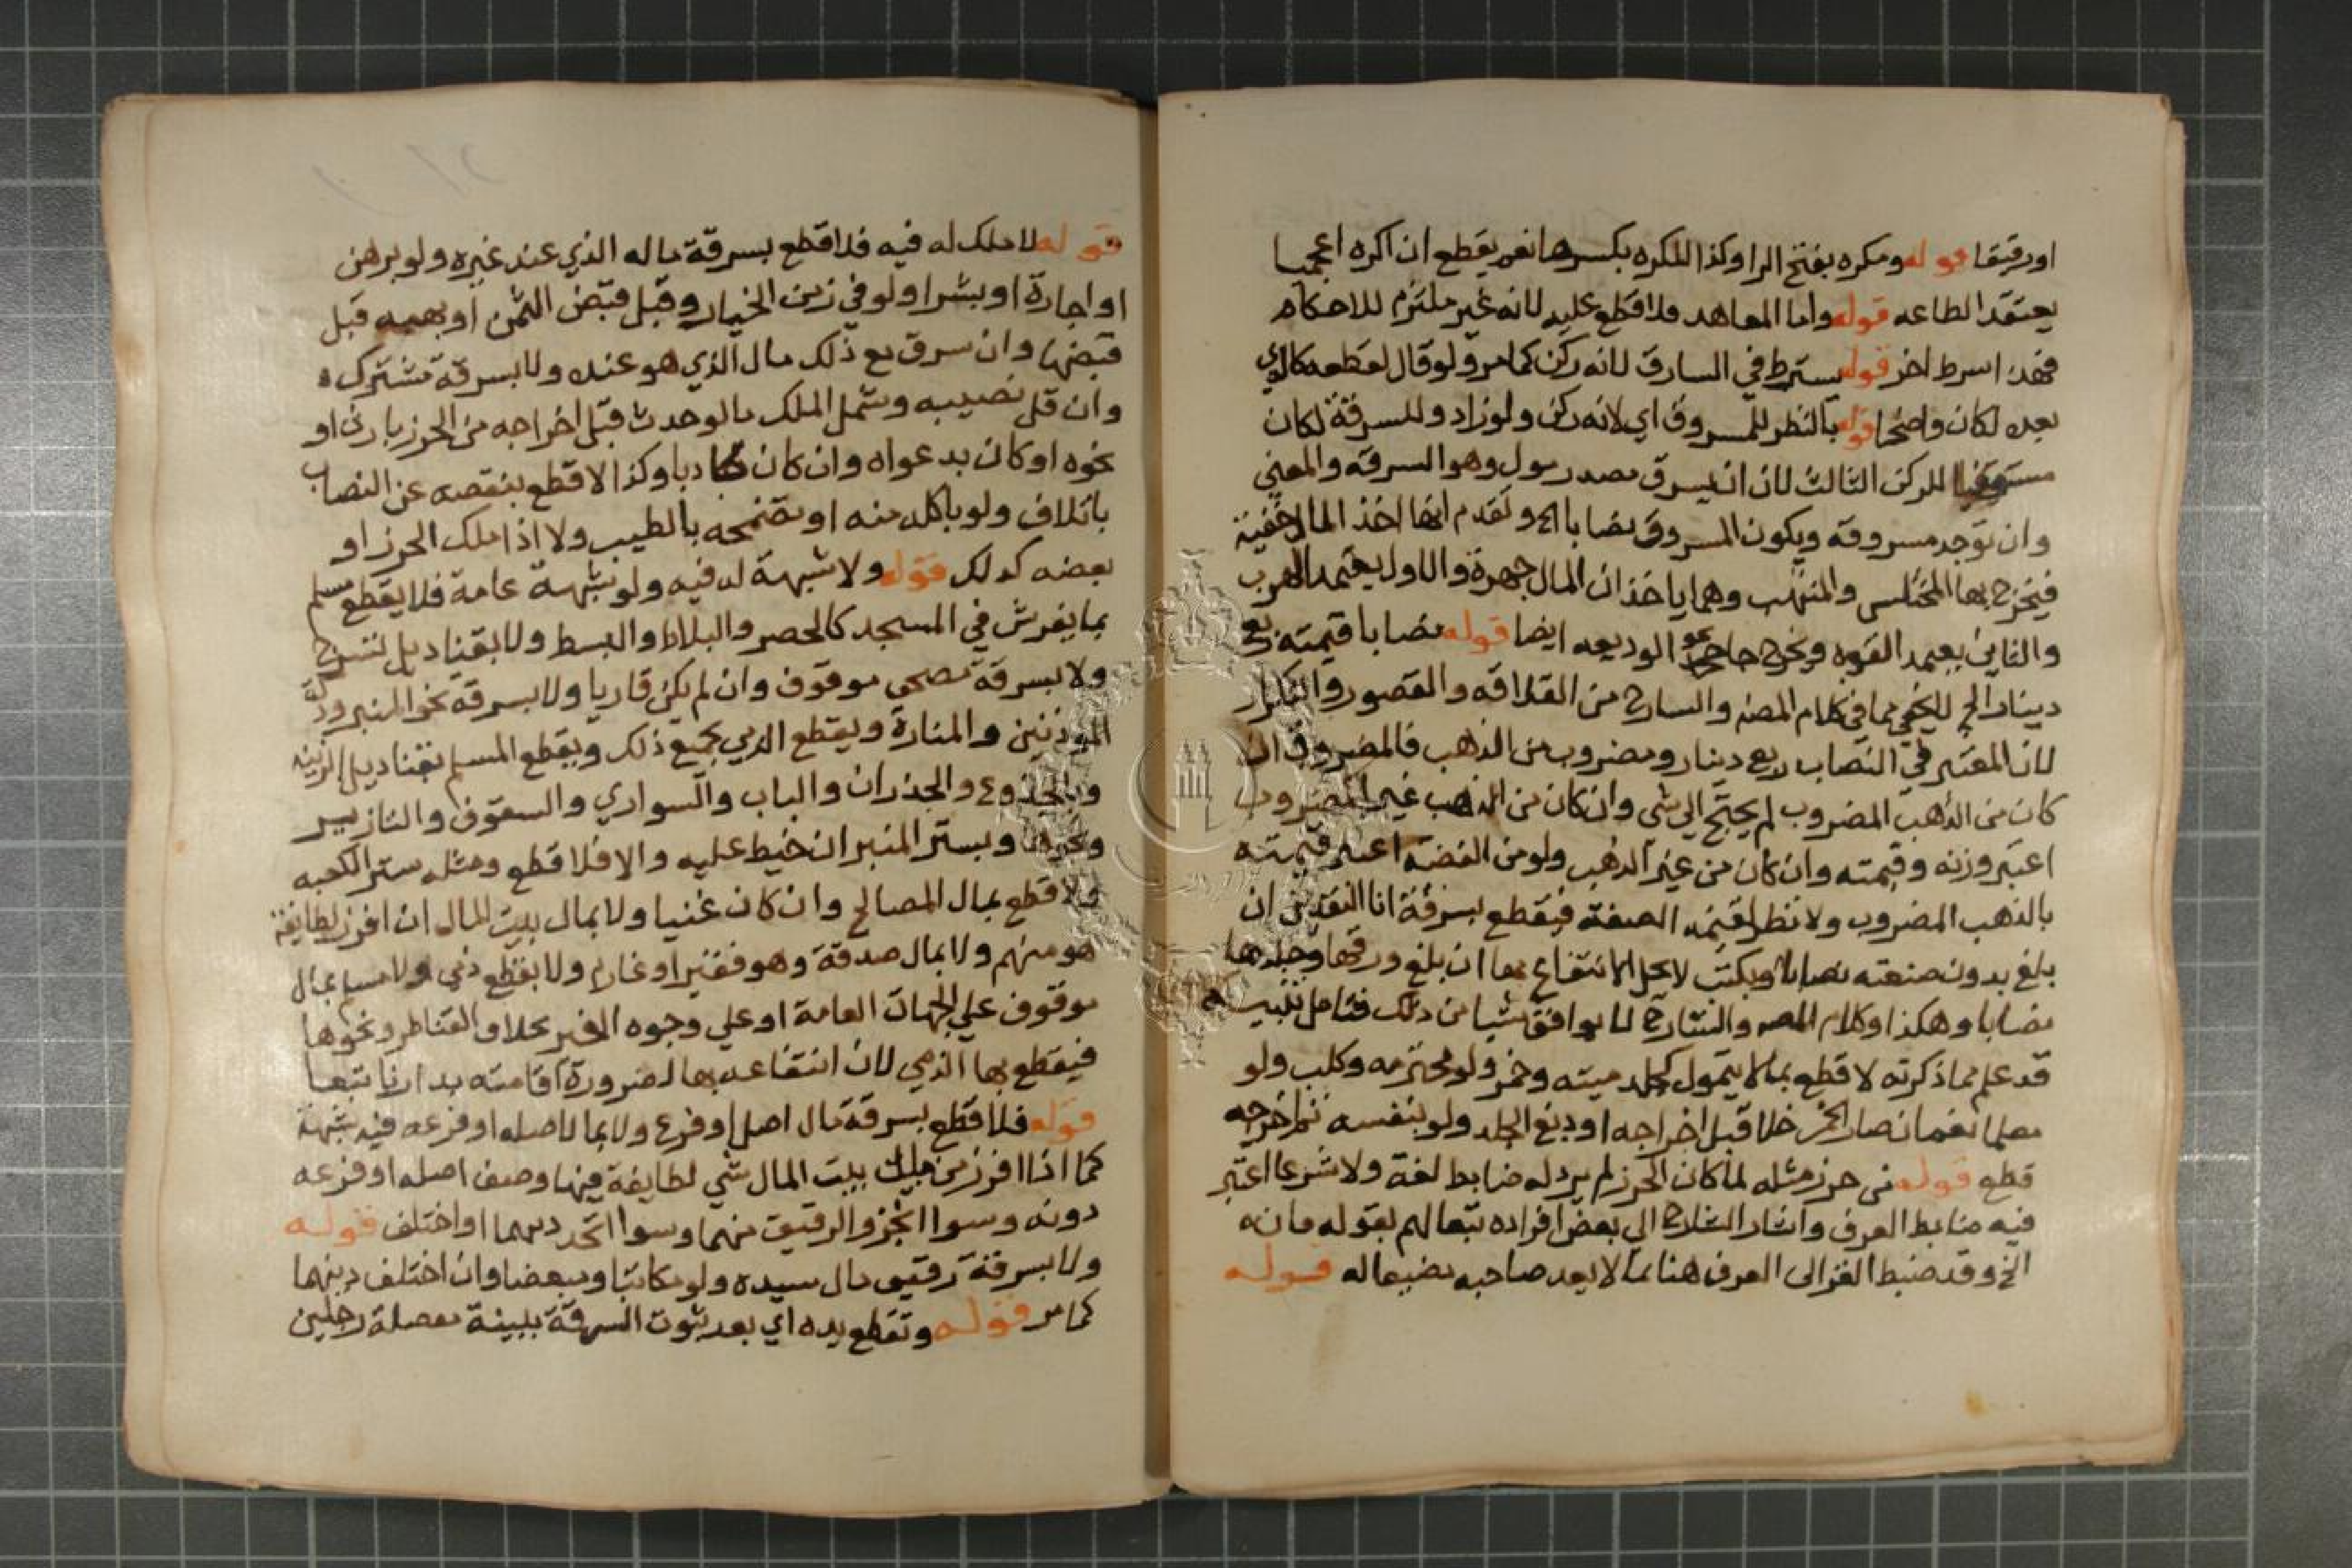 اورقيقا قوله ومكره بفتح الرا وكذا المكره بكسرها نعم يقطع ان اكره اعجميا
يعتقد الطاعه قوله واما المعاهد فلا قطع عليه لانه غير ملتزم للاحكام
فهذا شرط اخر قوله يشترط في السارق لانه ركن كما مر ولو قال لقطعه كالذي
بعده لكان واضحا قوله بالنظر للمسروق اي لانه ركن ولو زاد وللسرقة لكان
مستوفيا للركن الثالث لان ان يسرق مصدر مول وهو السرقه والمعني
وان توجد مسروقه ويكون المسروق نصابا الخ وتقدم انها اخذ المال خفية
فيخرج بها المختلس والمنتهب وهما ياخذان المال جهرة والاول يعتمد الهرب
والثاني يعتمد القوه ويخرج جاحد نحو الوديعه ايضا قوله نصابا قيمته ربع
دينار الخ لا يخفي ما في كلام المصنه والشارح من القلاقه والقصور والتكرار
لان المعتبر في النصاب ربع دينار مضروب من الذهب فالمضروق ان
كان من الذهب المضروب لم يحتج الي شي وان كان من الذهب غير المضروب
اعتبر وزنه وقيمته وان كان من غير الذهب ولو من الفضة اعتبر قيمته
بالذهب المضروب ولا نظر لقيمه الصنعة فيقطع بسرقة انا النقدين ان
بلغ بدون صنعته نصابا وبكتب لا يحل الانتفاع بها ان بلغ ورقها وجلدها
نصابا وهكذا وكلام المصه والشارح لا يوافق شيا من ذلك فتامل تنبيه
قد علم مما ذكرته لا قطع بما لا يتمول كجلد ميته وخمر ولو محترمه وكلب ولو
معلما نعم ان صار الخمر خلا قبل اخراجه او دبغ الجلد ولو بنفسه ثم اخرجه
قطع قوله من حرز مثله لما كان الحرز لم يرد له ضابط لغة ولا شرعا اعتبر
فيه ضابط العرف واشار الشارح الي بعض افراده تبعا لهم بقوله فان
الخ وقد ضبط الغزالى العرف هنا بما لا يعد صاحبه مضيعا له قوله
قوله لا ملك له فيه فلا قطع بسرقة ماله الذي عند غيره ولو برهن
او اجارة او بشرا ولو في زمن الخيار وقبل قبض الثمن او بهبه قبل
قبضها وان سرق مع ذلك مال الذي هو عنده ولا بسرقة مشترك
وان قل نصيبه وشمل الملك ما لو حدث قبل اخراجه من الحرز بارث او
نحوه او كان بدعواه وان كان كاذبا وكذا لا قطع بنقصه عن النصاب
باتلاف ولو باكله منه او تضمخه بالطيب ولا اذا ملك الحرز او
بعضه كذلك قوله ولا شبهة له فيه ولو شبهة عامة فلا يقطع مسلم
بما يفرش في المسجد كالحصر والبلاط والبسط ولا بقناديل تسرج
ولا بسرقة مصحف موقوف وان لم يكن قاريا ولا بسرقة نحو المنبر ودكة
الموذنين والمنارة ويقطع الذمي بجميع ذلك ويقطع المسلم بقناديل الزينه
وبالجذوع والجدران والباب والسواري والسقوف والتازيير
ونحوها وبستر المنبر ان خيط عليه والا فلا قطع ومثله ستر الكعبه
ولا قطع بمال المصالح وان كان غنيا ولا بمال بيت المال ان افرز لطايفة
هو منهم ولا بمال صدقة وهو فقير او غارم ولا يقطع ذمي ولا مسلم بمال
موقوف علي الجهات العامة او علي وجوه الخير بخلاف القناطر ونحوها
فيقطع بها الذمي لان انتفاعه بها لضرورة اقامته بدارنا تبعا
قوله فلا قطع بسرقة مال اصل او فرع ولا بما لاصله او فرعه فيه شبهة
كما اذا افرز من بيت المال شي لطايفة فيها وصف اصله او فرعه
دونه وسوا الحر والرقيق منهما وسوا اتحد دينهما او اختلف قوله
ولا بسرقة رقيق مال سيده ولو مكاتبا ومبعضا وان اختلف دينهما
كما مر قوله وتقطع يده اي بعد ثبوت السرقة ببينة مفصلة رجلين